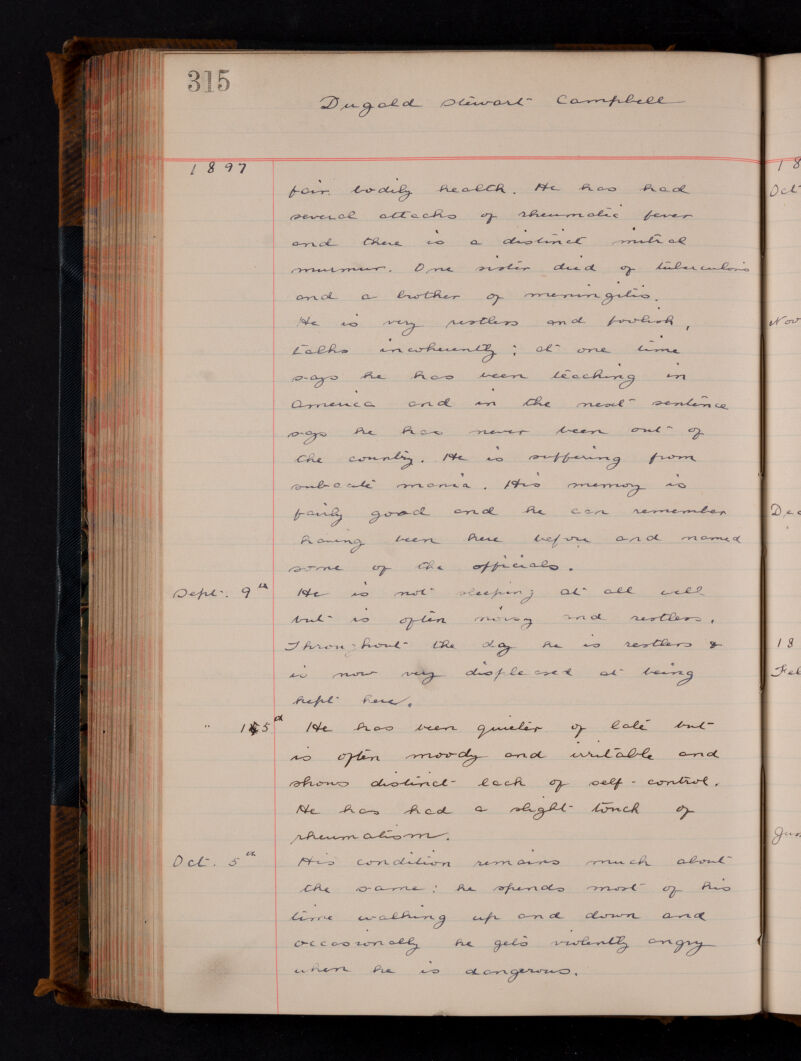 315
Dugald Stewart Campbell
1897
fair bodily health. He has had
several attacks of rheumatic fever
and there is a distinct mitral
murmur. One sister died of tuberculosis
and a brother of meningitis.
He is very restless and foolish,
talks incoherently; at one time
says he has been teaching in
America and in the next sentence
says he has never been out of
the country. He is suffering from
subacute mania. His memory is
fairly good and he can remember
having been here before and named
some of the officials.
Sept. 9th He is not sleeping at all well
but is often noisy and restless.
Throughout the day he is restless &
is now very displeased at being
kept here.
" He has been quieter of late but
is often moody and irritable and
shows distinct lack of self-control.
He has had a slight touch of
rheumatism.
Oct. 5th His condition remains much about
the same: he spends most of his
time walking up and down and
occasionally he gets violently angry
when he is dangerous.
18
Oct
Nov
Dec
18
Feb